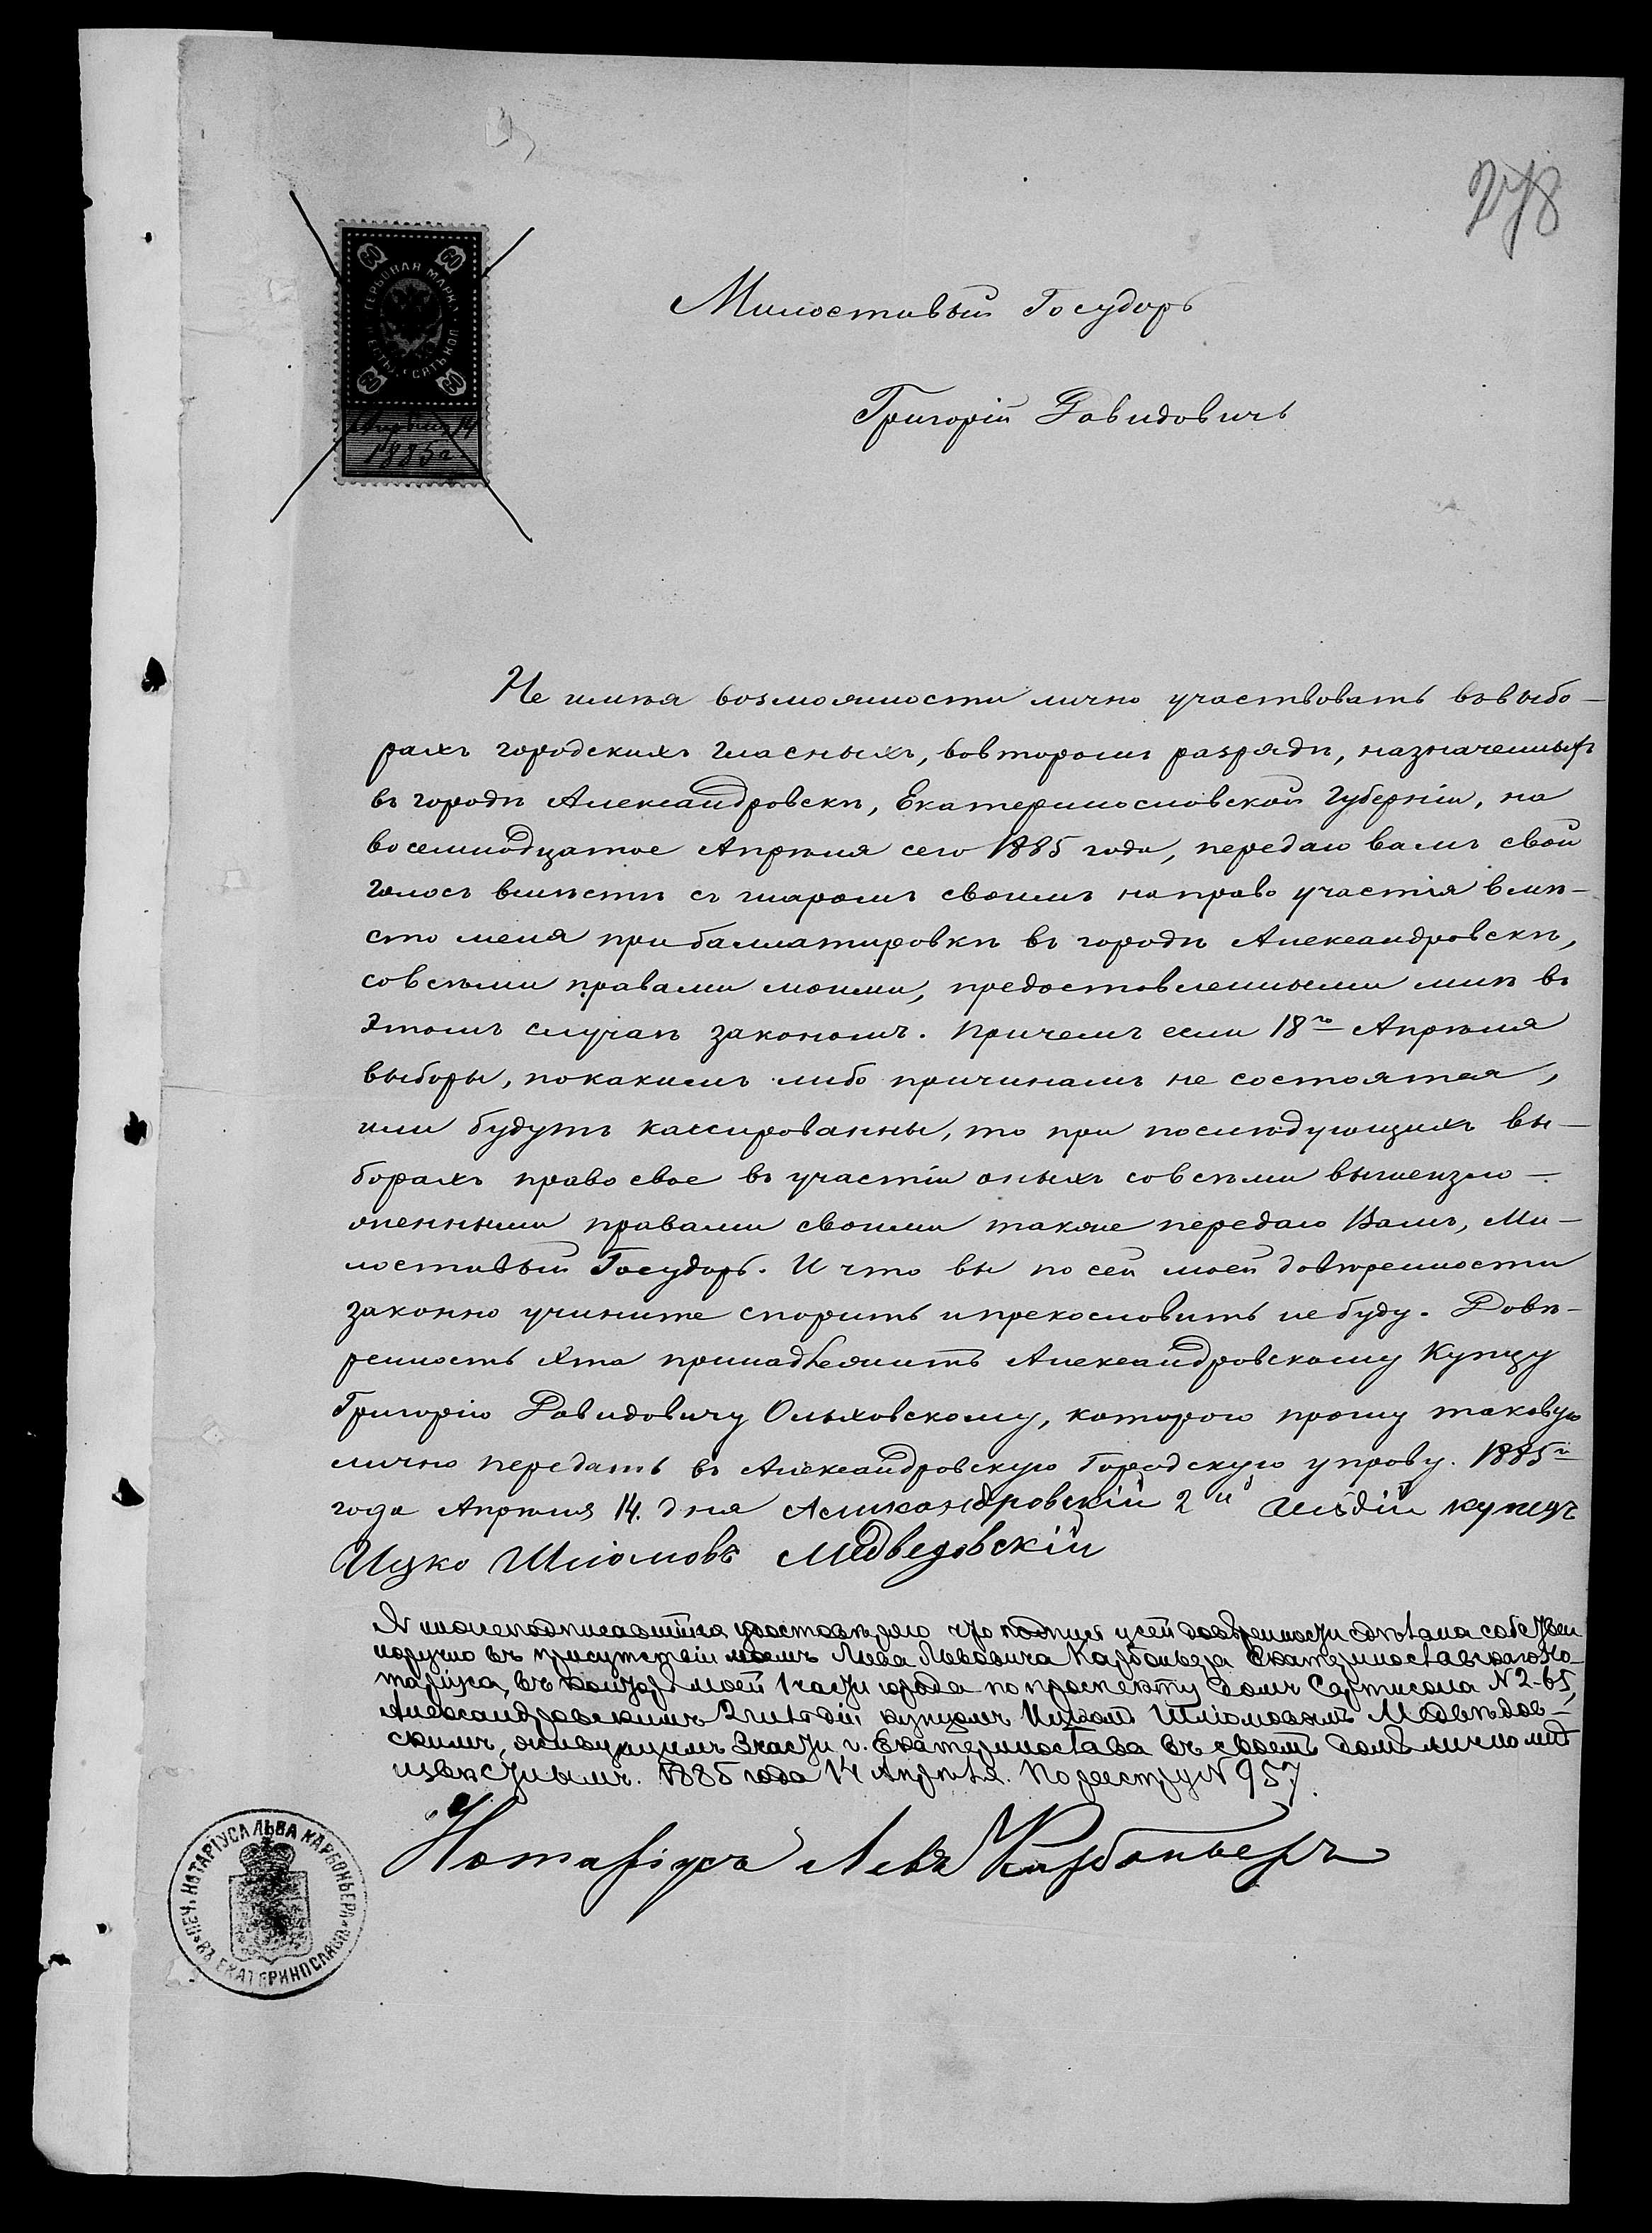 278
ГЕРБОВАЯ МАРКА
ШЕСТЬДЕСЯТЬ КОП
60
60
60
60
Апрѣля 14
1885 г
Милостивый Государь
Григорій Давидовичъ
Не имѣя возможности лично участвовать въ выбо-
рахъ городскихъ гласныхъ, во второмъ разрядѣ, назначенныхъ
въ городѣ Александровскѣ, Екатеринославской Губерніи, на
восемнадцатое Апрѣля сего 1885 года, передаю вамъ свой
голосъ вмѣстѣ съ шаромъ своимъ на право участія вмѣ-
сто меня при баллатировкѣ въ городѣ Александровскѣ,
со всѣми правами моими, предоставленными мнѣ въ
этомъ случаѣ закономъ. Причемъ если 18го Апрѣля
выборы, по какимъ либо причинамъ не состоятся,
или будутъ кассированны, то при послѣдующихъ вы-
борахъ право свое въ участіи оныхъ со всѣми вышеизло-
женными правами своими также передаю Вамъ, Ми-
лостивый Государь. И что вы по сей моей довѣренности
законно учините спорить и прекословить не буду. Довѣ-
ренность эта принадлежитъ Александровскому Купцу
Григорію Давидовичу Ольховскому, которого прошу таковую
лично передать въ Александровскую Городскую управу. 1885г
года Апрѣля 14. дня Аликсандровскій 2й гильдіи купецъ
Ицко Шліомовъ Медведовскій
Я нижеподписавшійся удостовѣряю что подпись на сей довѣренности сдѣлана собствен
норучно въ присутствіи моемъ Льва Львовича Карбоньера Екатеринославскаго Но-
таріуса, въ конторѣ моей 1 части города по проспекту домъ N 2-65,
Александровскимъ 2 гильдіи купцомъ Ицкомъ Шліомовымъ Медвѣдов-
скимъ, живущимъ 3 части г. Екатеринослава въ своемъ домѣ лично мнѣ
извѣстнымъ. 1885 года 14 Апрѣля. По реестру N 957.
Нотаріусъ Левъ Карбоньеръ
ПЕЧ. НОТАРІУСА ЛЬВА КАРБОНЬЕРА
ВЪ ЕКАТЕРИНОСЛАВѢ